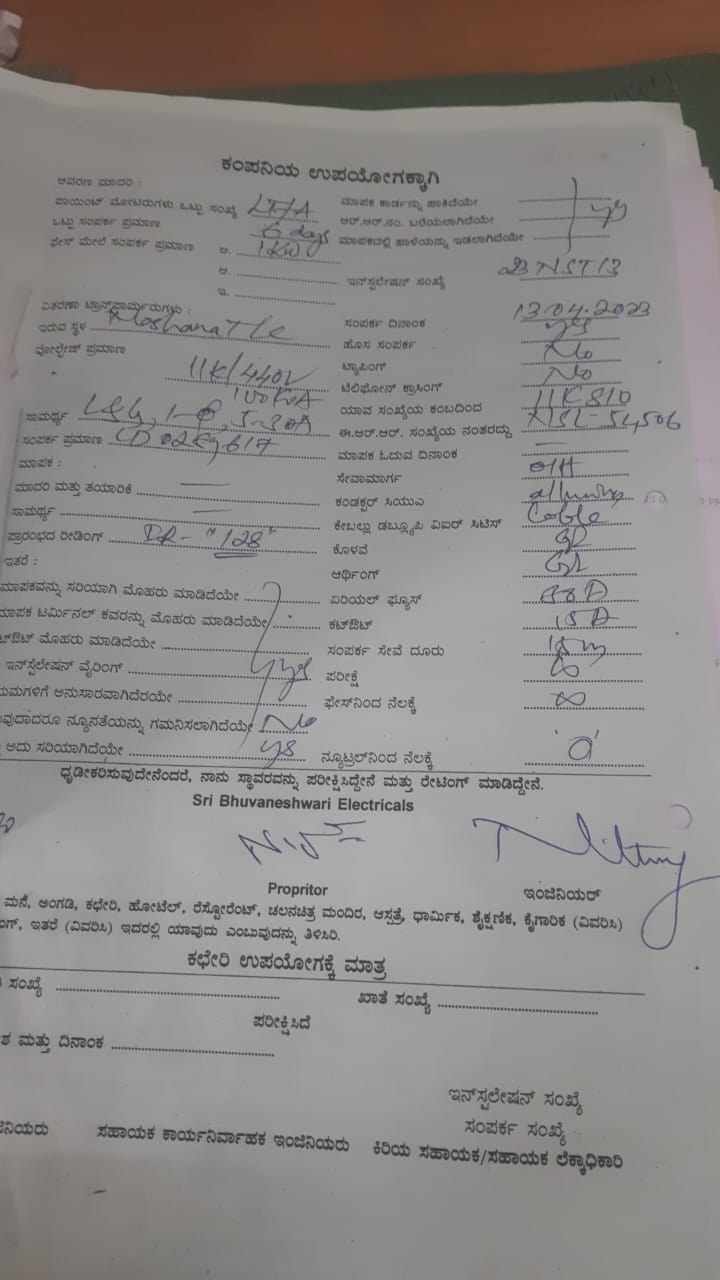 ಕಂಪನಿಯ ಉಪಯೋಗಕ್ಕಾಗಿ
ಆವರಣ ಮಾದರಿ :
ಪಾಯಿಂಟ್ ಮೋಟರುಗಳು ಒಟ್ಟು ಸಂಖ್ಯೆ
ಮಾಪಕ ಕಾರ್ಡನ್ನು ಹಾಕಿದೆಯೇ
ಒಟ್ಟು ಸಂಪರ್ಕ ಪ್ರಮಾಣ 6 days
ಆರ್.ಆರ್.ನಂ. ಬರೆಯಲಾಗಿದೆಯೇ
ಫೇಸ್ ಮೇಲೆ ಸಂಪರ್ಕ ಪ್ರಮಾಣ ಅ. 1KW
ಮಾಪಕದಲ್ಲಿ ಹಾಳೆಯನ್ನು ಇಡಲಾಗಿದೆಯೇ
ಆ.
ಇ.
ಇನ್‌ಸ್ಪಲೇಷನ್ ಸಂಖ್ಯೆ
ವಿತರಣಾ ಟ್ರಾನ್ಸ್‌ಫಾರ್ಮರುಗಳು :
ಸಂಪರ್ಕ ದಿನಾಂಕ 13.04.2023
ಇರುವ ಸ್ಥಳ
ಹೊಸ ಸಂಪರ್ಕ yes
ವೋಲ್ಟೇಜ್ ಪ್ರಮಾಣ 11K/440V
ಟ್ಯಾಪಿಂಗ್ No
100KVA
ಟೆಲಿಫೋನ್ ಕ್ರಾಸಿಂಗ್ No
ಸಾಮರ್ಥ್ಯ L&G, 1-Φ, 5-30A
ಯಾವ ಸಂಖ್ಯೆಯ ಕಂಬದಿಂದ 11K810
ಸಂಪರ್ಕ ಪ್ರಮಾಣ
ಈ.ಆರ್.ಆರ್. ಸಂಖ್ಯೆಯ ನಂತರದ್ದು
ಮಾಪಕ :
ಮಾಪಕ ಓದುವ ದಿನಾಂಕ —
ಮಾದರಿ ಮತ್ತು ತಯಾರಿಕೆ —
ಸೇವಾಮಾರ್ಗ O/H
ಸಾಮರ್ಥ್ಯ —
ಕಂಡಕ್ಟರ್ ಸಿಯುಎ
ಪ್ರಾರಂಭದ ರೀಡಿಂಗ್ IR- "128"
ಕೇಬಲ್ಲು ಡಬ್ಲ್ಯೂಪಿ ಎಐರ್ ಸಿಟಿಸ್ Cable
ಇತರೆ :
ಕೊಳವೆ GI
ಆರ್ಥಿಂಗ್ GI
ಮಾಪಕವನ್ನು ಸರಿಯಾಗಿ ಮೊಹರು ಮಾಡಿದೆಯೇ
ಏರಿಯಲ್ ಫ್ಯೂಸ್
ಮಾಪಕ ಟರ್ಮಿನಲ್ ಕವರನ್ನು ಮೊಹರು ಮಾಡಿದೆಯೇ
ಕಟ್‌ಔಟ್ 15A
ಟ್‌ಔಟ್ ಮೊಹರು ಮಾಡಿದೆಯೇ
ಸಂಪರ್ಕ ಸೇವೆ ದೂರು
ಇನ್‌ಸ್ಪಲೇಷನ್ ವೈರಿಂಗ್ yes
ಪರೀಕ್ಷೆ ∞
ಯಮಗಳಿಗೆ ಅನುಸಾರವಾಗಿದೆರಯೇ
ಫೇಸ್‌ನಿಂದ ನೆಲಕ್ಕೆ ∞
ವುದಾದರೂ ನ್ಯೂನತೆಯನ್ನು ಗಮನಿಸಲಾಗಿದೆಯೇ No
ಅದು ಸರಿಯಾಗಿದೆಯೇ yes
ನ್ಯೂಟ್ರಲ್‌ನಿಂದ ನೆಲಕ್ಕೆ 'O'
ಧೃಡೀಕರಿಸುವುದೇನೆಂದರೆ, ನಾನು ಸ್ಥಾವರವನ್ನು ಪರೀಕ್ಷಿಸಿದ್ದೇನೆ ಮತ್ತು ರೇಟಿಂಗ್ ಮಾಡಿದ್ದೇನೆ.
Sri Bhuvaneshwari Electricals
Propritor
ಇಂಜಿನಿಯರ್
ಮನೆ, ಅಂಗಡಿ, ಕಛೇರಿ, ಹೋಟೆಲ್, ರೆಸ್ಟೋರೆಂಟ್, ಚಲನಚಿತ್ರ ಮಂದಿರ, ಆಸ್ಪತ್ರೆ, ಧಾರ್ಮಿಕ, ಶೈಕ್ಷಣಿಕ, ಕೈಗಾರಿಕ (ವಿವರಿಸಿ)
ಂಗ್, ಇತರೆ (ವಿವರಿಸಿ) ಇದರಲ್ಲಿ ಯಾವುದು ಎಂಬುವುದನ್ನು ತಿಳಿಸಿರಿ.
ಕಛೇರಿ ಉಪಯೋಗಕ್ಕೆ ಮಾತ್ರ
ಸಂಖ್ಯೆ
ಖಾತೆ ಸಂಖ್ಯೆ
ಪರೀಕ್ಷಿಸಿದೆ
ಮತ್ತು ದಿನಾಂಕ
ಇನ್‌ಸ್ಪಲೇಷನ್ ಸಂಖ್ಯೆ
ಸಂಪರ್ಕ ಸಂಖ್ಯೆ
ಜಿನಿಯರು ಸಹಾಯಕ ಕಾರ್ಯನಿರ್ವಾಹಕ ಇಂಜಿನಿಯರು ಕಿರಿಯ ಸಹಾಯಕ/ಸಹಾಯಕ ಲೆಕ್ಕಾಧಿಕಾರಿ